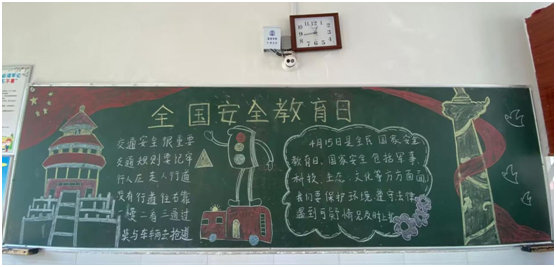 全国安全教育日
交通安全很重要
交通规则要记牢
行人应走人行道
没有行道往右靠
一慢二看三通过
莫与车辆去抢道
4月15日是全民国家安全
教育日，国家安全包括军事、
科技、生态、文化等方方面面
我们要保护环境，遵守法律
遇到可疑情况及时上报